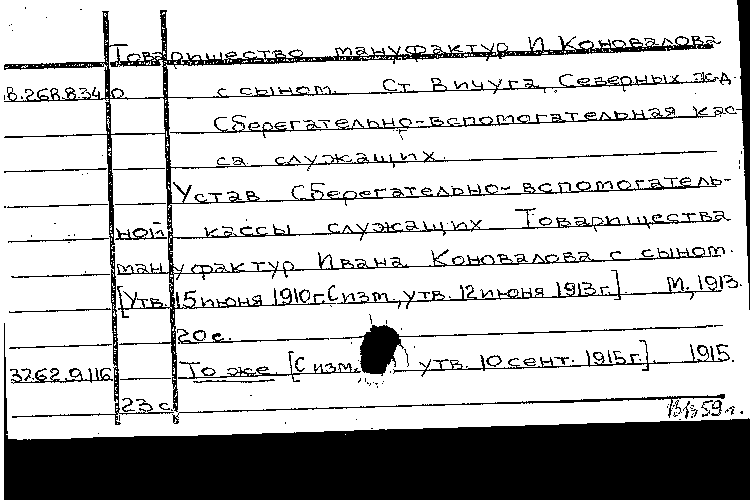 Товарищество мануфактур И Коновалова
В.268.834 о с сыном. Ст. Вичуга, Северных ж.д.
Сберегательно-вспомогательная кас-
са служащих.
Устав Сберегательно-вспомогатель-
ной кассы служащих Товарищества
мануфактур Ивана Коновалова с сыном.
[Утв. 15 июня 1910г. С изм., утв. 12 июня 1913 г.]. М., 1913.
20 с.
3262.9.116 То же [С изм. утв. 10 сент. 1915 г.]. 1915.
23 с